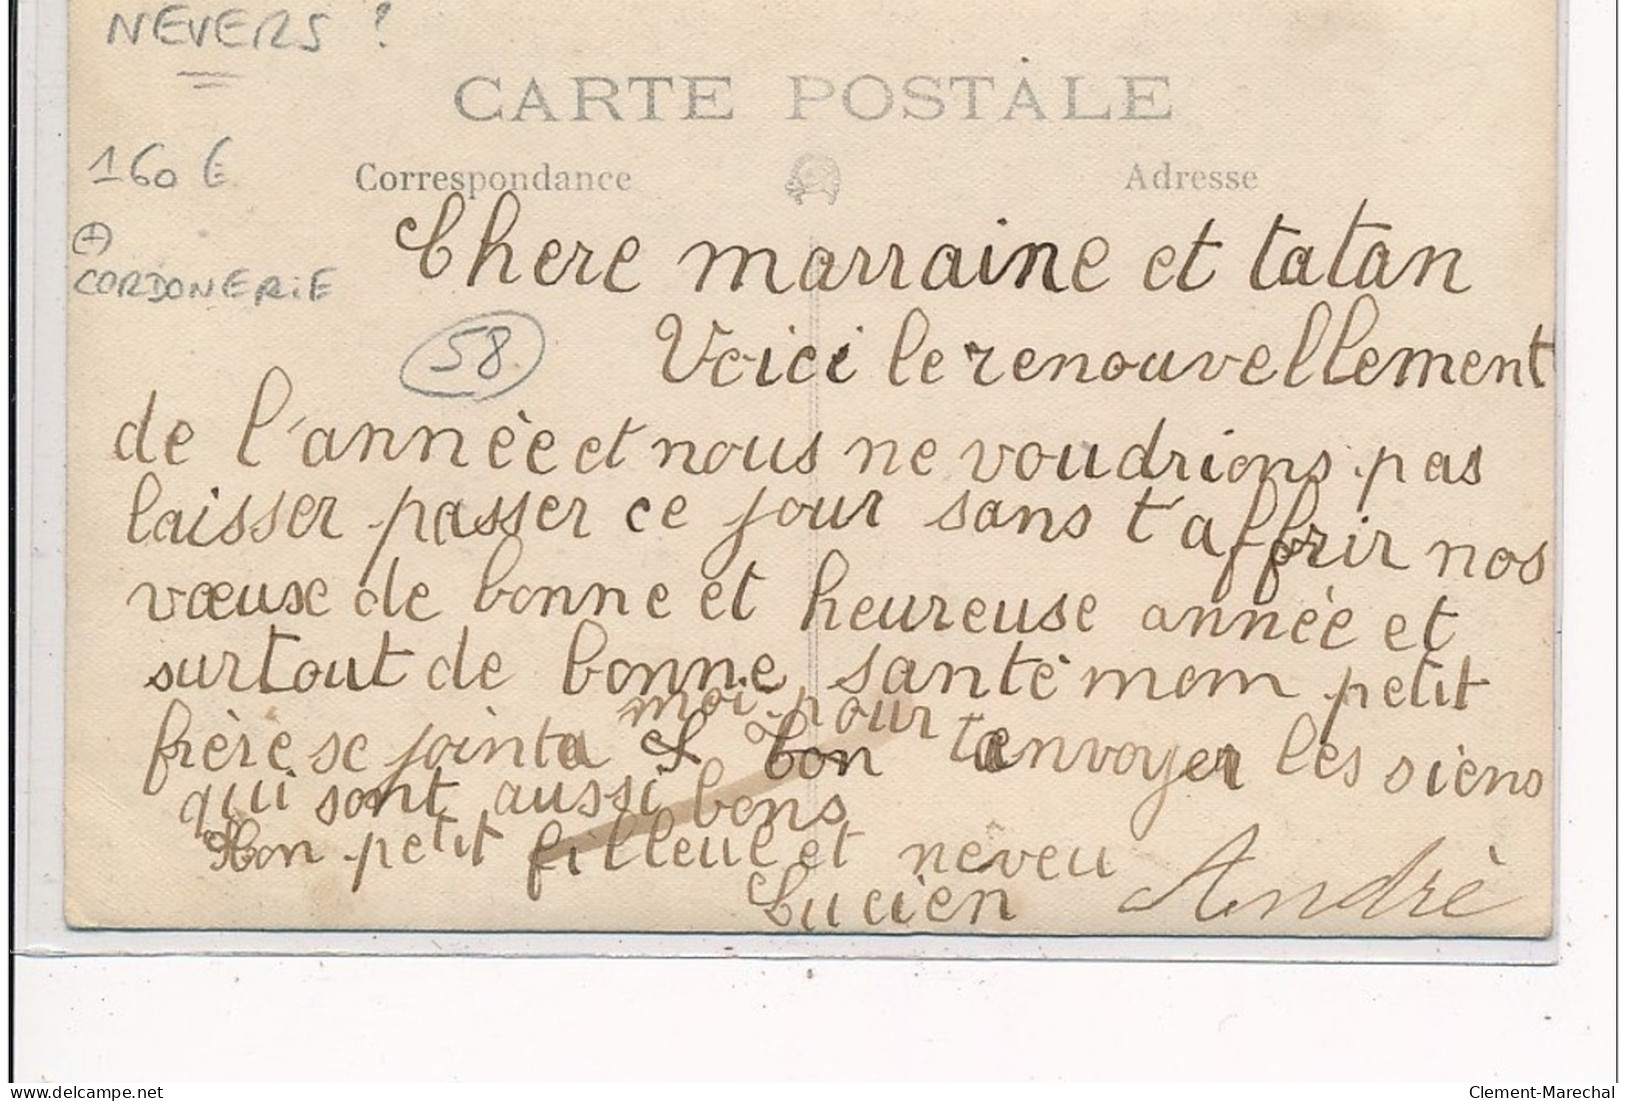 NEVERS ?
CARTE POSTALE
160 €
Correspondance
Adresse
+
CORDONERIE
Chere marraine et tatan
58
Voici le renouvellement
de l'annèe et nous ne voudrions pas
laisser passer ce jour sans t'affrir nos
vœuse de bonne et heureuse annèe et
surtout de bonne santé mom petit
moi pour
frère se joint a à ton t'envoyer les siens
qui sont aussi bons
Ton petit filleul et neveu
Lucien Andrè
delcampe.net
Clement-Marechal